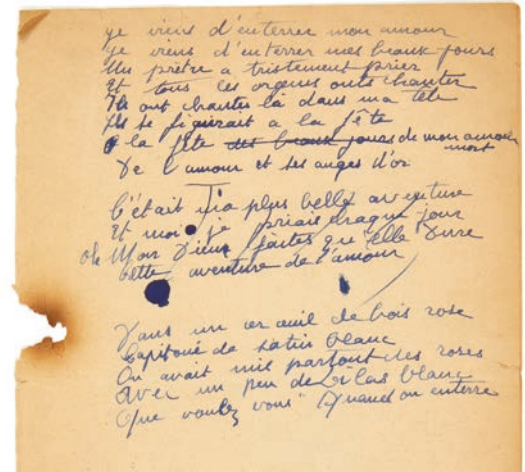 je viens d'enterrer mon amour
je viens d'enterrer mes beaux jours
Un prêtre a tristement prier
Et tous les orgues onts chanter
Ils ont chanter là dans ma tête
Ils se figurait a la fête
a la fête des beaux jours de mon amour
mort
De l'amour et ses anges d'or
C'était ma plus belle aventure
Et moi je priais chaque jour
oh Mon Dieu faites qu'elle dure
Cette aventure de l'amour
Dans un cercueil de bois rose
Capitoné de satin blanc
On avait mis partout des roses
Avec un peu de Lilas blanc
Que voulez vous Quand on enterre